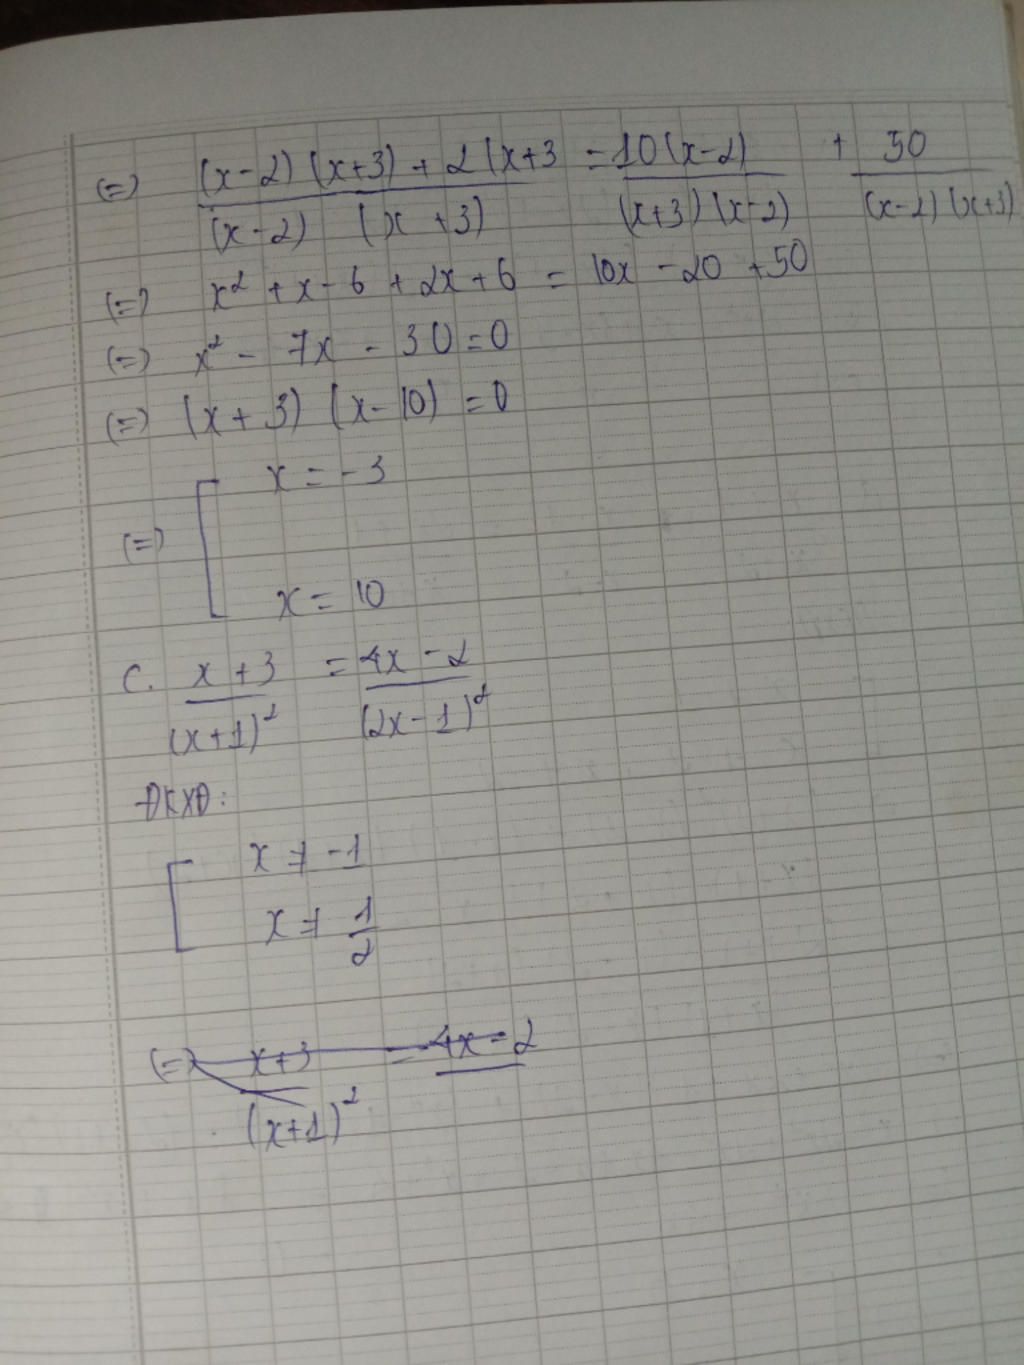 (=) (x-2) (x+3) + 2(x+3 = 10(x-2) + 50
(x-2) (x+3) (x+3)(x-2) (x-2)(x+3)
(=) x² + x - 6 + 2x + 6 = 10x - 20 + 50
(=) x² - 7x - 30 = 0
(=) (x + 3) (x - 10) = 0
x = -3
(=)
x = 10
C. x + 3 = 4x - 2
(x+1)² (2x-1)²
ĐKXĐ:
x ≠ -1
x ≠ 1
2
(=) x+3 = 4x - 2
(x+1)²